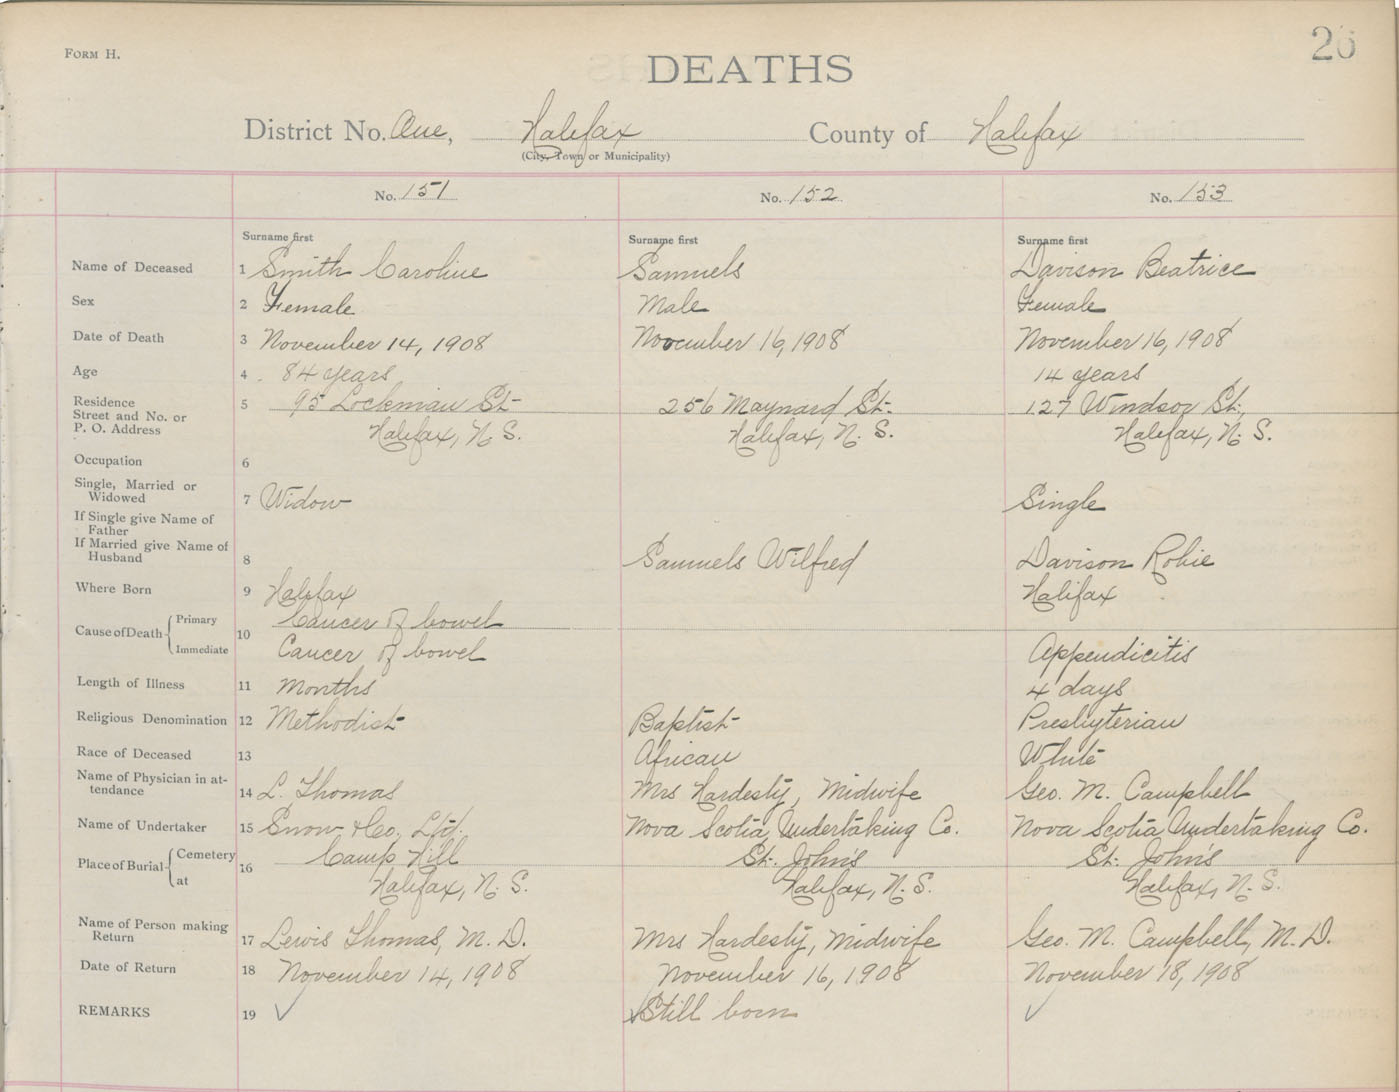 FORM H.
26
DEATHS
District No. One, Halifax County of Halifax
(City, Town or Municipality)
No. 151 No. 152 No. 153
Surname first Surname first Surname first
Name of Deceased 1 Smith Caroline Samuels Davison Beatrice
Sex 2 Female Male Female
Date of Death 3 November 14, 1908 November 16, 1908 November 16, 1908
Age 4 84 years 14 years
Residence
Street and No. or 5 95 Lockman St 256 Maynard St. 127 Windsor St.,
P. O. Address Halifax, N S. Halifax, N. S. Halifax, N. S.
Occupation 6
Single, Married or
Widowed 7 Widow Single
If Single give Name of
Father
If Married give Name of
Husband 8 Samuels Wilfred Davison Robie
Where Born 9 Halifax Halifax
Cause of Death Primary 10 Cancer of bowel
Immediate Cancer of bowel Appendicitis
Length of Illness 11 Months 4 days
Religious Denomination 12 Methodist Baptist Presbyterian
Race of Deceased 13 African White
Name of Physician in at-
tendance 14 L. Thomas Mrs Hardesty, Midwife Geo. M. Campbell
Name of Undertaker 15 Snow & Co. Ltd. Nova Scotia Undertaking Co. Nova Scotia Undertaking Co.
Place of Burial Cemetery 16 Camp Hill St. John's St. John's
at Halifax, N. S. Halifax, N. S. Halifax, N. S.
Name of Person making
Return 17 Lewis Thomas, M. D. Mrs Hardesty, Midwife Geo. M. Campbell, M. D.
Date of Return 18 November 14, 1908 November 16, 1908 November 18, 1908
REMARKS 19 ✓ ✓ Still born ✓